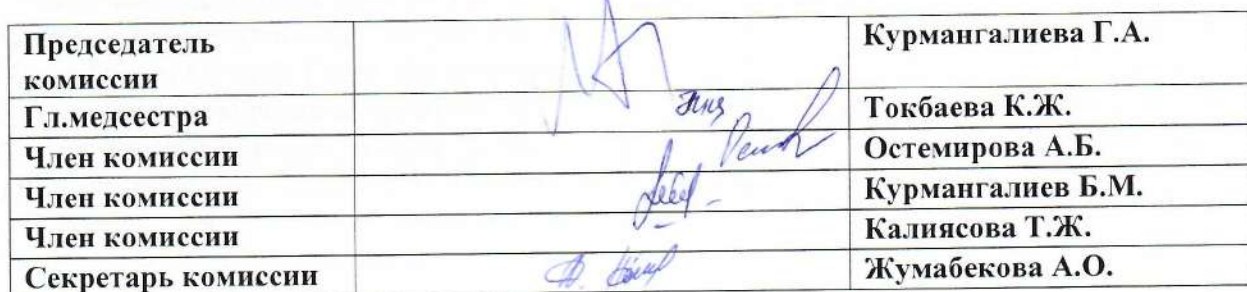 Председатель комиссии Курмангалиева Г.А.
Гл.медсестра Токбаева К.Ж.
Член комиссии Остемирова А.Б.
Член комиссии Курмангалиев Б.М.
Член комиссии Калиясова Т.Ж.
Секретарь комиссии Жумабекова А.О.